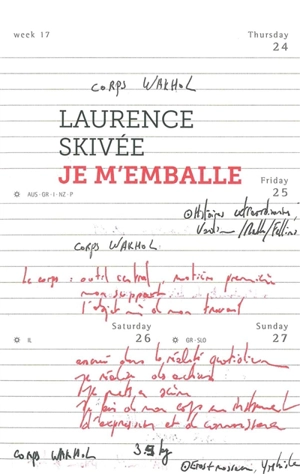 week 17 Thursday
24
CORPS WARHOL
LAURENCE
SKIVÉE
JE M'EMBALLE
Friday
25
AUS · GR · I · NZ · P
Histoires extraordinaires
Vadim / Malle / Fellini
CORPS WARHOL
Le corps : outil central, matière première
mon support
l'objet de mon travail
Saturday Sunday
26 27
IL GR · SLO
ancré dans la réalité quotidienne
je réalise des actions
je mets en scène
je fais de mon corps un instrument
d'expression et de connaissance
CORPS WARHOL 35 kg